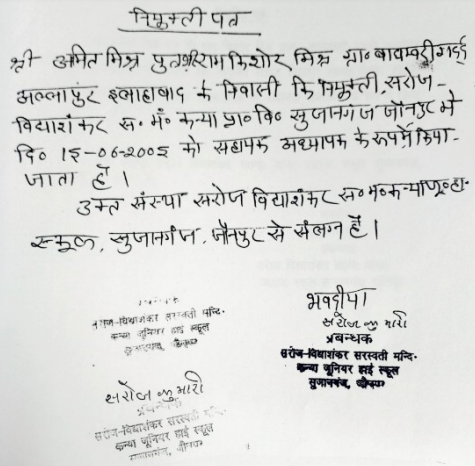 नियुक्ती पत्र
श्री अमित मिश्र पुत्र श्री राम किशोर मिश्र ग्रा० बाघम्बरी गद्दी
अल्लापुर इलाहाबाद के निवासी कि नियुक्ती, सरोज-
विद्याशंकर स. मं. कन्या प्रा० वि० सुजानगंज जौनपुर मे
दि० 15-06-2005 को सहायक अध्यापक के रूप मे किया-
जाता हैं।
उक्त संस्था सरोज विद्याशंकर स० म० कन्या जू० हा-
स्कूल, सुजानगंज, जौनपुर से संलग्न हैं।
भवदीया
सरोज कुमारी
प्रबन्धक
सरोज-विद्याशंकर सरस्वती मन्दि-
कन्या जूनियर हाई स्कूल
सुजानगंज, जौनपुर
सरोज-विद्याशंकर सरस्वती मन्दि-
कन्या जूनियर हाई स्कूल
सुजानगंज, जौनपुर
सरोज कुमारी
प्रबन्धक
सरोज-विद्याशंकर सरस्वती मन्दि-
कन्या जूनियर हाई स्कूल
सुजानगंज, जौनपुर